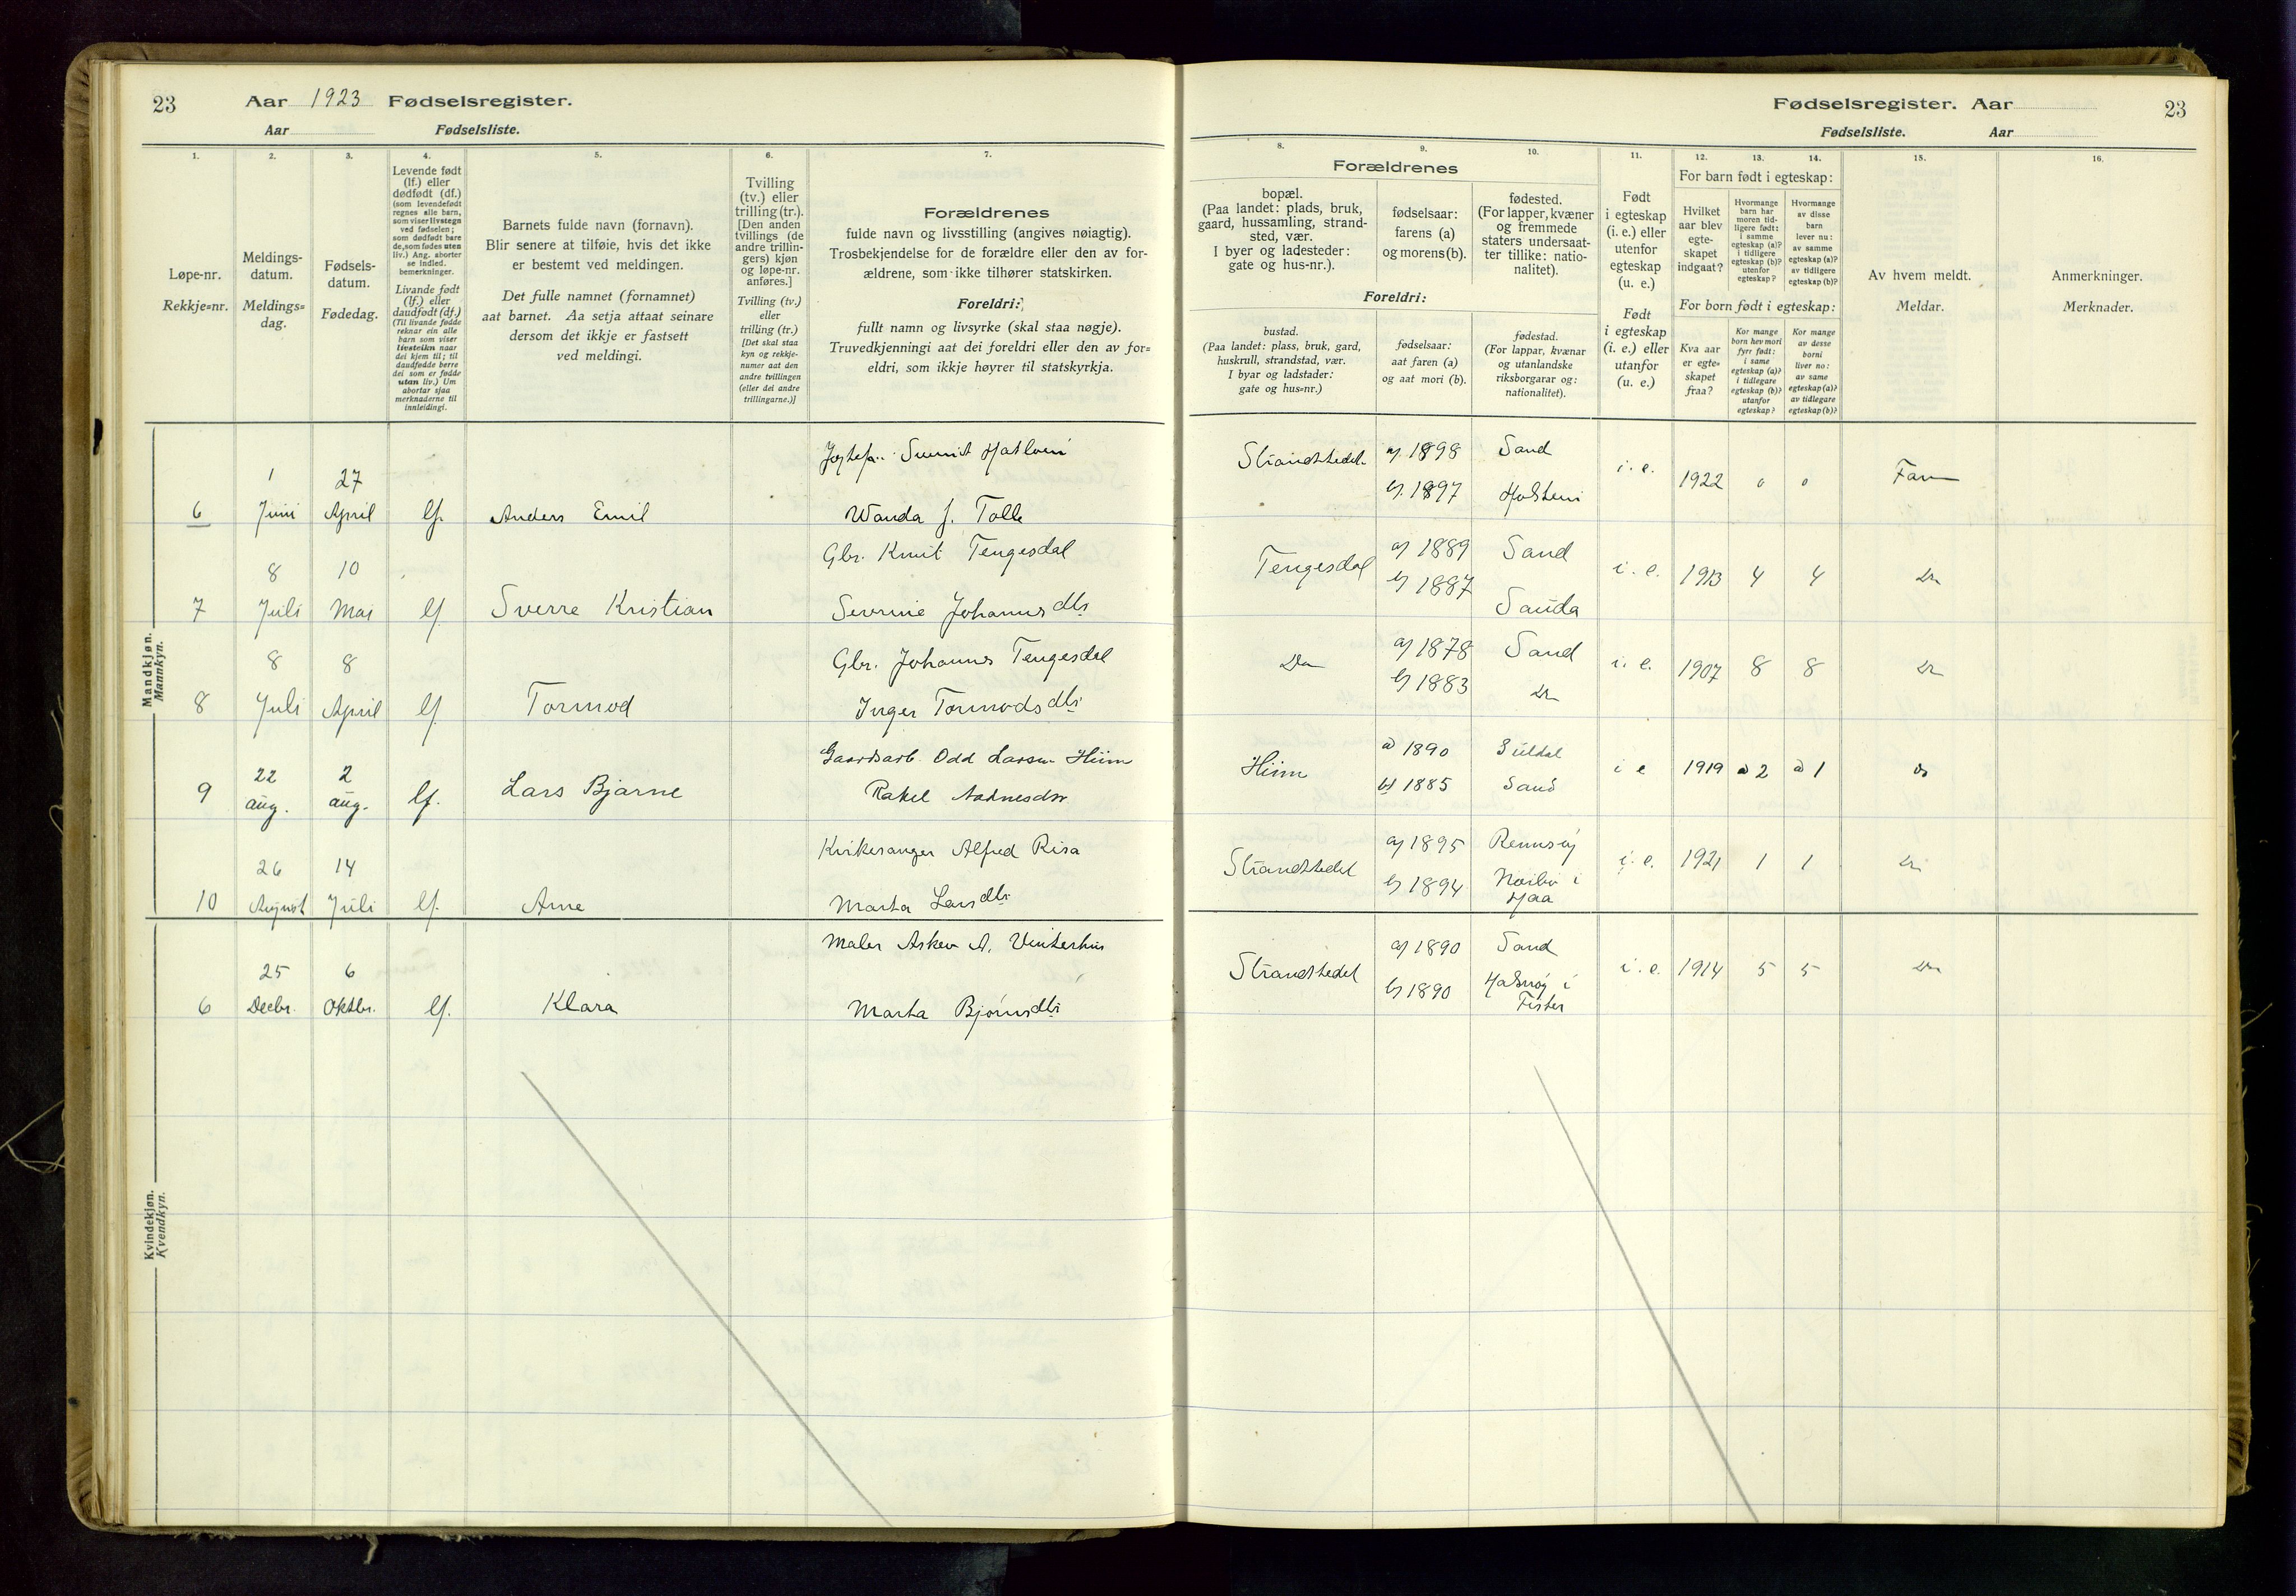 23
Aar 1923 Fødselsregister.
Aar Fødselsliste.
1.
2.
3.
4.
5.
6.
7.
Løpe-nr.
Rekkje=nr.
Meldings-
datum.
Meldings=
dag.
Fødsels-
datum.
Fødedag.
Levende født
(lf.) eller
dødfødt (df.)
(som levendefødt
regnes alle barn,
som viser livstegn
ved fødselen;
som dødfødt bare
de, som fødes uten
liv.) Ang. aborter
se indled.
bemerkninger.
Livande født
(lf.) eller
daudfødt (df.)
(Til livande fødde
reknar ein alle
barn som viser
livsteikn naar
dei kjem til; til
daudfødde berre
dei som er fødde
utan liv.) Um
abortar sjaa
merknaderne til
innleidingi.
Barnets fulde navn (fornavn).
Blir senere at tilføie, hvis det ikke
er bestemt ved meldingen.
Det fulle namnet (fornamnet)
aat barnet. Aa setja attaat seinare
dersom det ikkje er fastsett
ved meldingi.
Tvilling
(tv.) eller
trilling (tr.).
[Den anden
tvillings (de
andre trillin-
gers) kjøn
og løpe-nr.
anføres.]
Tvilling (tv.)
eller
trilling (tr.)
[Det skal staa
kyn og rekkje-
numer aat den
andre tvillingen
(eller dei andre
trillingarne.)]
Forældrenes
fulde navn og livsstilling (angives nøiagtig).
Trosbekjendelse for de forældre eller den av for-
ældrene, som ikke tilhører statskirken.
Foreldri:
fullt namn og livsyrke (skal staa nøgje).
Truvedkjenningi aat dei foreldri eller den av for=
eldri, som ikkje høyrer til statskyrkja.
Mandkjøn.
Mannkyn.
6 1 Juni 27 April lf. Anders Emil
Wanda J. Tolle
7 8 Juli 10 Mai lf. Sverre Kristian
Gbr. Knut Tengesdal
Severine Johannesdtr
8 8 Juli 8 April lf. Tormod
Gbr. Johannes Tengesdal
Inger Tormodsdtr
9 22 aug. 2 aug. lf. Lars Bjarne
Gaardsarb. Odd Larsen Hiim
Rakel Aadnesdtr
10 26 August 14 Juli lf. Arne
Alfred Risa
Marta Larsdtr
Kvindekjøn.
Kvendkyn.
6 25 Decbr. 6 Oktbr. lf. Klara
Maler Askev A. Vinterhus
Marta Bjørnsdtr
Fødselsregister. Aar
23
Fødselsliste. Aar
8.
9.
10.
11.
12.
13.
14.
15.
16.
Forældrenes
bopæl.
(Paa landet: plads, bruk,
gaard, hussamling, strand-
sted, vær.
I byer og ladesteder:
gate og hus-nr.).
fødselsaar:
farens (a)
og morens (b).
fødested.
(For lapper, kvæner
og fremmede
staters undersaat-
ter tillike: natio-
nalitet).
Foreldri:
bustad.
(Paa landet: plass, bruk, gard,
huskrull, strandstad, vær.
I byar og ladstader:
gate og hus=nr.)
fødselsaar:
aat faren (a)
og aat mori (b).
fødestad.
(For lappar, kvænar
og utanlandske
riksborgarar og:
nationalitet).
Født
i egteskap
(i. e.) eller
utenfor
egteskap
(u. e.)
Født
i egteskap
(i. e.) eller
utanfor
(u. e.)
For barn født i egteskap:
Hvilket
aar blev
egte-
skapet
indgaat?
Hvormange
barn har
moren tid-
ligere født:
i samme
egteskap (a)?
i tidligere
egteskap (b)?
utenfor
egteskap?
Hvormange
av disse
barn
lever nu:
av samme
egteskap (a)?
av tidligere
egteskap (b)?
For born født i egteskap:
Kva aar
er egte-
skapet
fraa?
Kor mange
born hev mori
fyrr født:
i same
egteskap (a)?
i tidlegare
egteskap (b)?
utanfor
egteskap?
Kor mange
av desse
borni
liver no:
av same
egteskap (a)?
av tidlegare
egteskap (b)?
Av hvem meldt.
Meldar.
Anmerkninger.
Merknader.
Strandstedet a) 1898 Sand i. e. 1922 0 0 Faren
b) 1897 Holstein
Tengesdal a) 1889 Sand i. e. 1913 4 4 Do
b) 1887 Sauda
Do a) 1878 Sand i. e. 1907 8 8 Do
b) 1883 Do
Hiim a) 1890 Suldal i e 1919 a 2 a 1 do
b) 1885 Sand
Strandstedet a) 1895 Rennesøy i. e. 1921 1 1 Do
b) 1894 Nærbø i
Haa
Strandstedet a) 1890 Sand i. e. 1914 5 5 Do
b) 1890 Halsnøy i
Fister